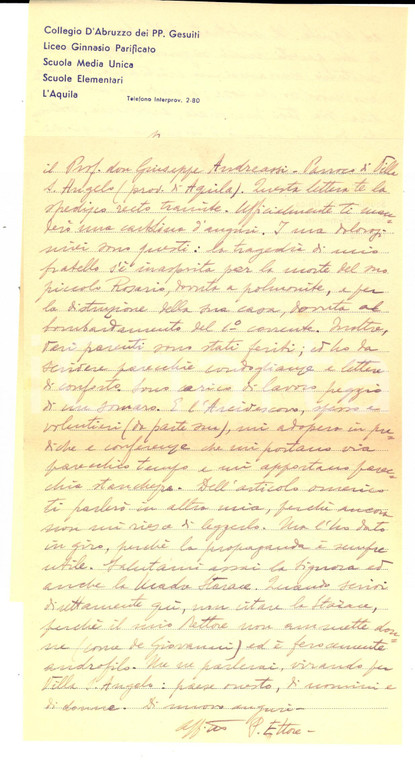 Collegio D'Abruzzo dei PP. Gesuiti
Liceo Ginnasio Parificato
Scuola Media Unica
Scuole Elementari
L'Aquila Telefono Interprov. 2-80
il Prof. don Giuseppe Andreassi - Parroco di Villa
S. Angelo (prov. di Aquila). Questa lettera te la
spedisco recto tramite. Ufficialmente ti man-
però una cartolina d'auguri. I miei dolorosi
sono questi: la tragedia di mio
fratello s'è inasprita per la morte del suo
piccolo Rosario, dovuta a polmonite, e per
la distruzione della sua casa, dovuta al
bombardamento del 6° corrente. Inoltre,
vari parenti sono stati feriti; ed ho da
scrivere parecchie condoglianze e lettere
di conforto. Sono carico di lavoro peggio
di un somaro. E l'Arcivescovo, spesso e
volentieri (da parte sua), mi adopera in pre-
diche e conferenze che mi portano via
parecchio tempo e mi apportano parec-
chia stanchezza. Dell'articolo omerico
ti parlerò in altra mia, perchè ancora
non mi riesce di leggerlo. Ma l'ho dato
in giro, perchè la propaganda è sempre
utile. Salutami assai la Signora ed
anche la Madre Starace. Quando scrivi
direttamente qui, non citare la Starace,
perchè il mio Rettore non ammette don-
ne (come de Giovanni) ed è ferocemente
androfilo. Me ne parlerai, virando per
Villa S. Angelo: paese onesto, di uomini e
di donne. Di nuovo auguri -
aff.mo P. Ettore -